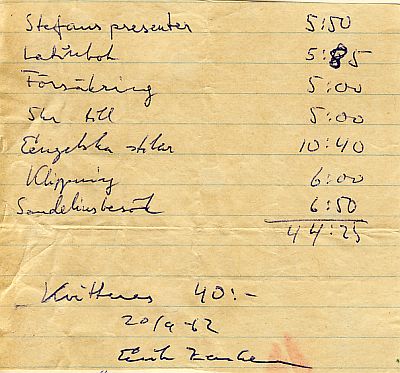 Stefans presenter 5:50
Latinbok 5:85
Försäkring 5:00
5kr till 5:00
Engelska stilar 10:40
Klippning 6:00
Sandeliusbesök 6:50
44:25
Kvitteras 40:-
20/9-62
Erik